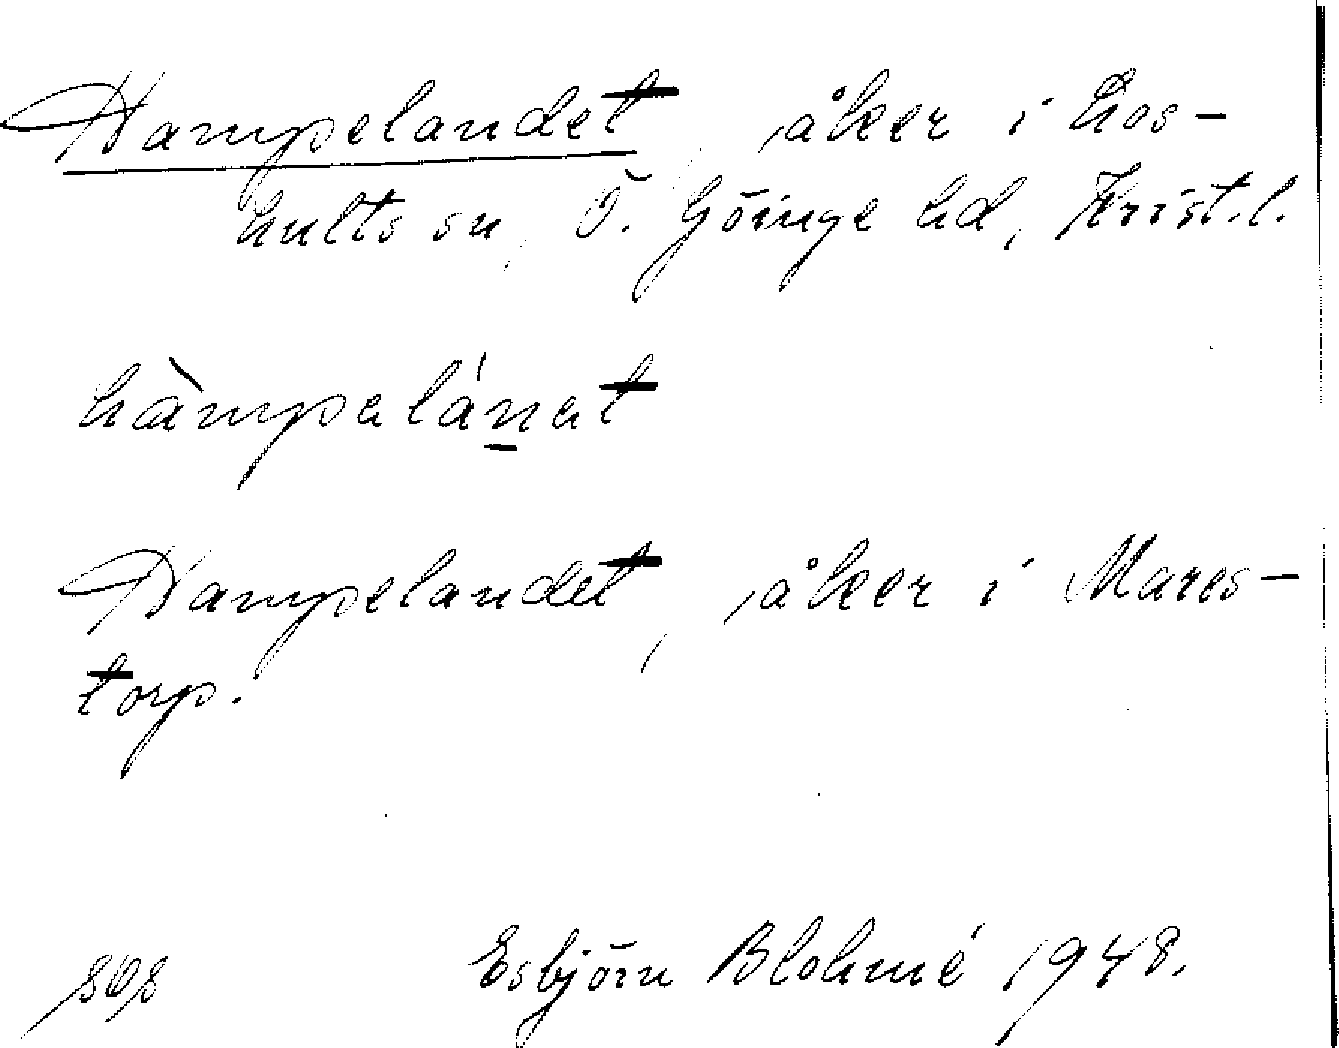 Hampelandet, åker i Los-
hults sn, Ö. Göinge hd, Krist. l.
hàmpalánat
Hampelandet, åker i Mares-
torp.
Esbjörn Blohmé 1948.